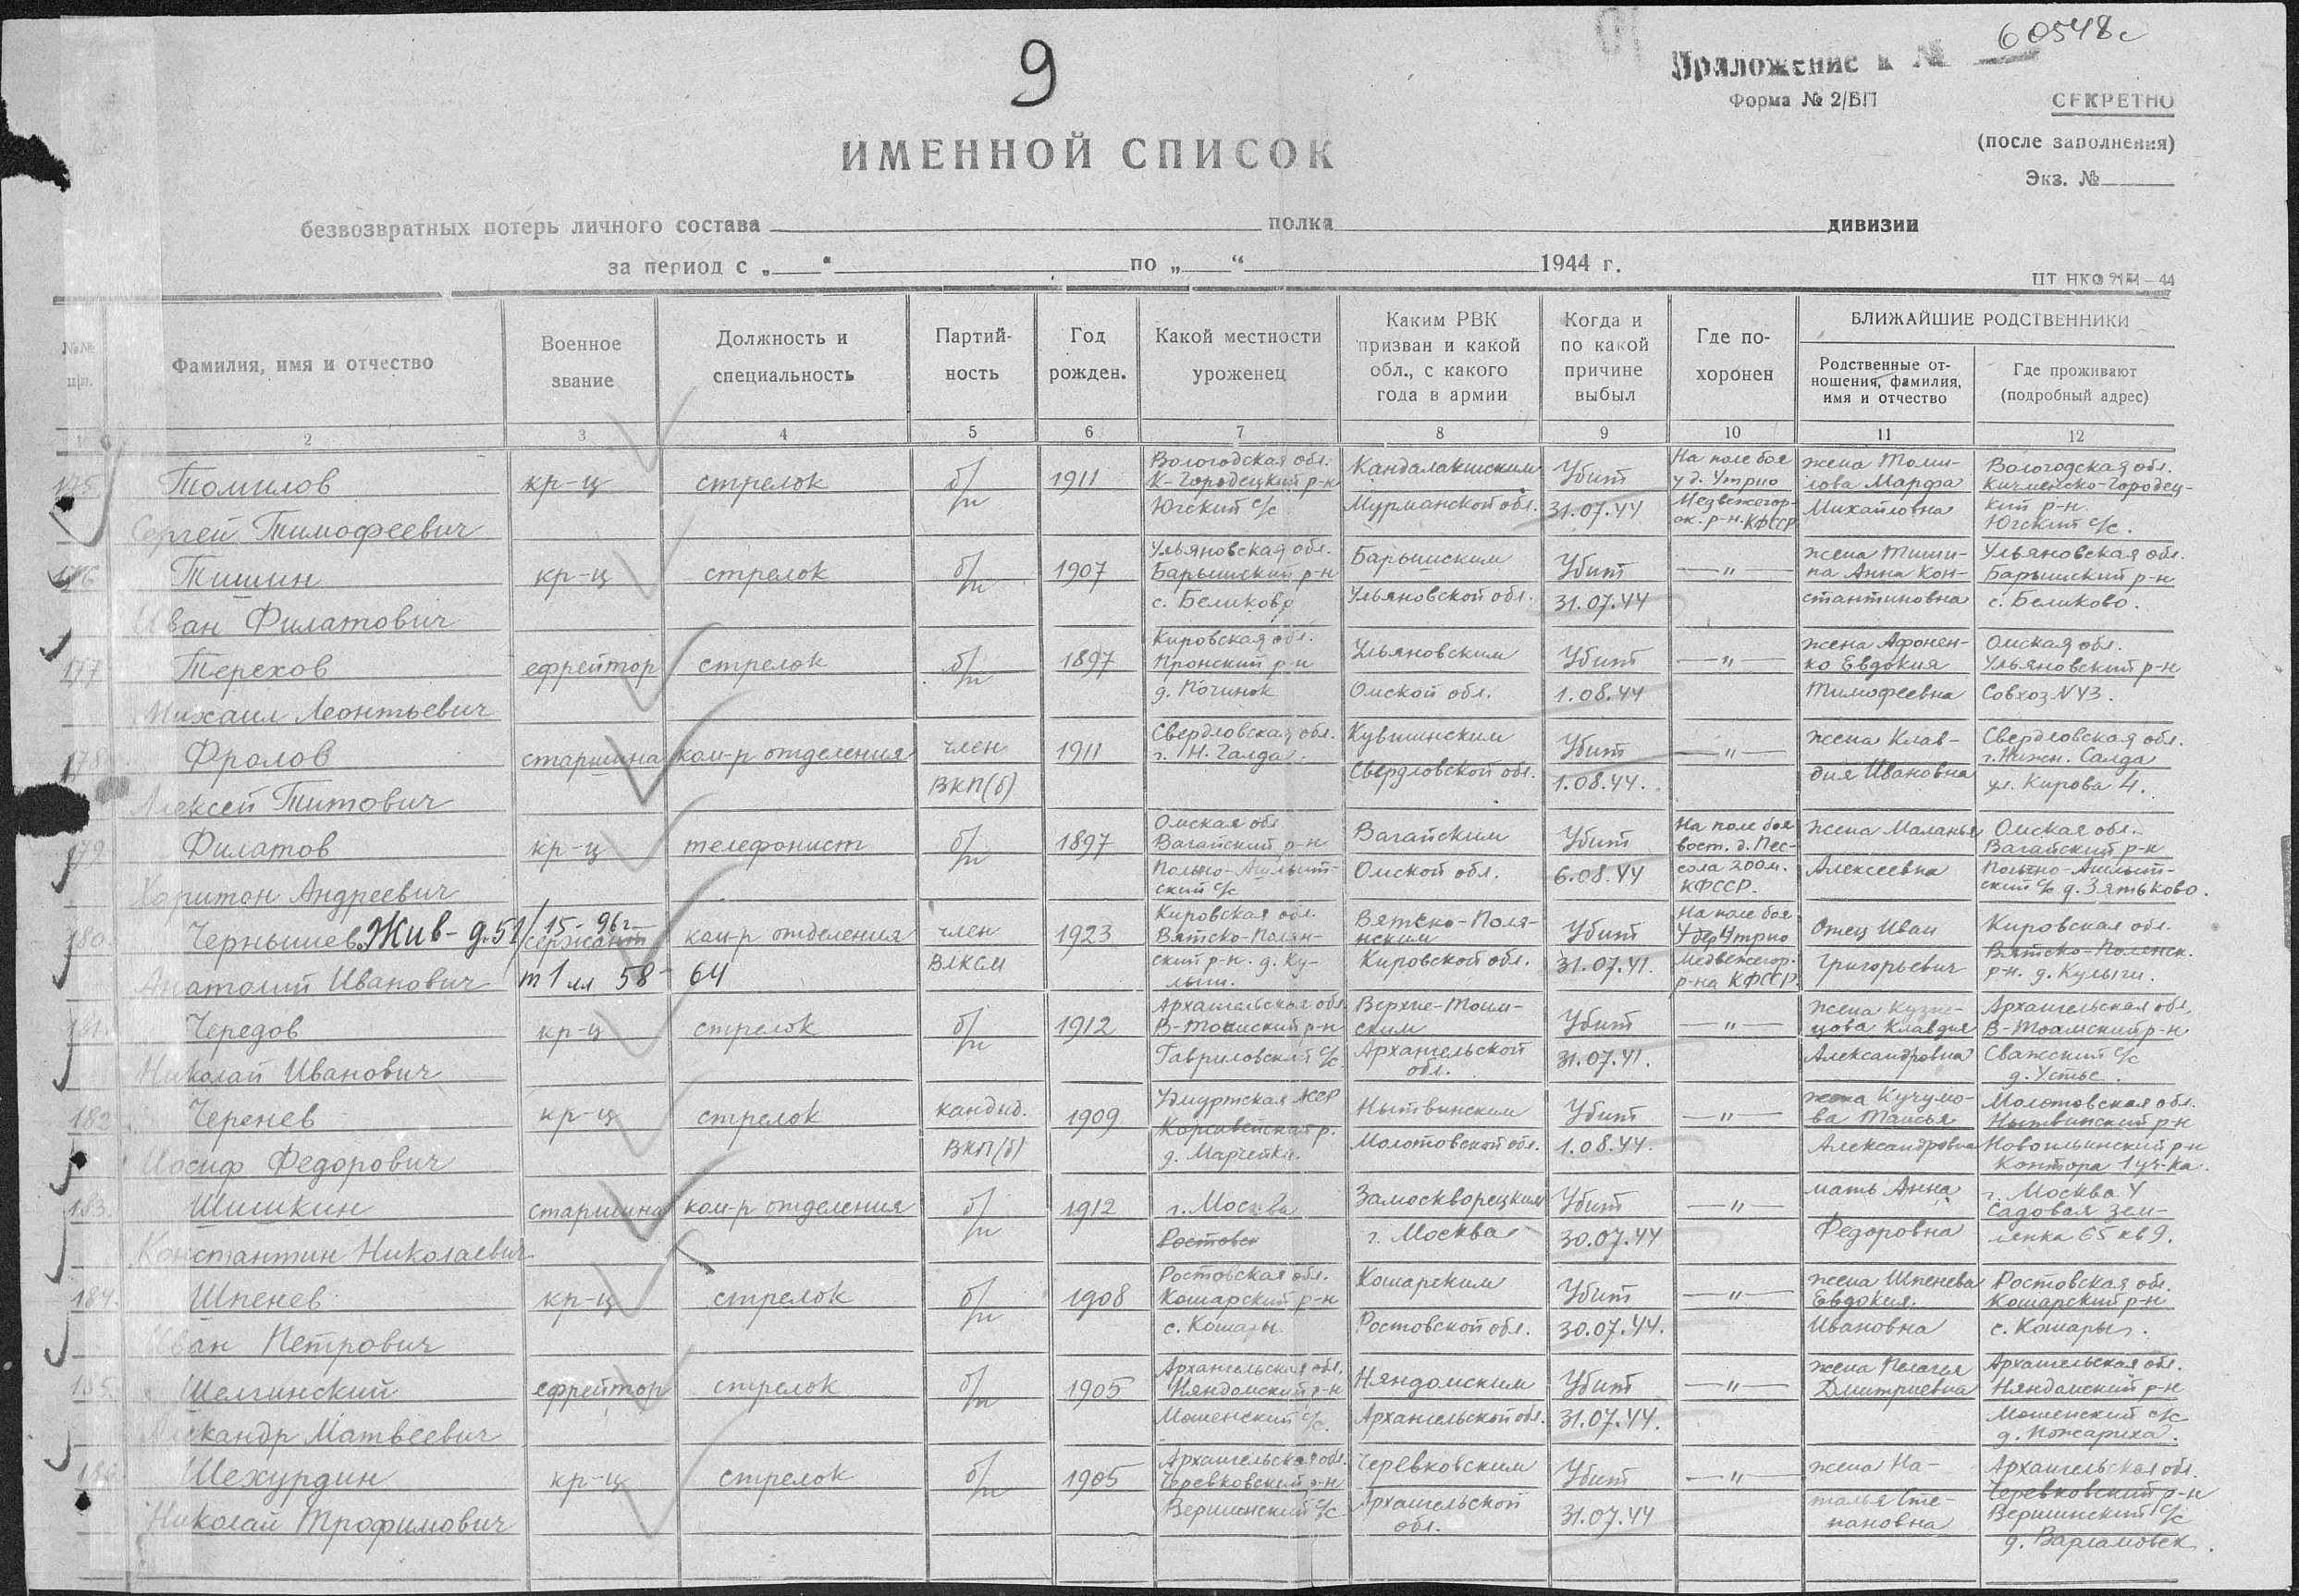 9
60548с
Приложение к №
Форма № 2/БП
СЕКРЕТНО
(после заполнения)
Экз. №
ИМЕННОЙ СПИСОК
безвозвратных потерь личного состава полка дивизии
за период с „ “ по „ “ 1944 г.
ЦТ НКО
№№ п/п.
Фамилия, имя и отчество
Военное звание
Должность и специальность
Партий-ность
Год рожден.
Какой местности уроженец
Каким РВК призван и какой обл., с какого года в армии
Когда и по какой причине выбыл
Где по-хоронен
БЛИЖАЙШИЕ РОДСТВЕННИКИ
Родственные от-ношения, фамилия, имя и отчество
Где проживают (подробный адрес)
1 2 3 4 5 6 7 8 9 10 11 12
175. Томилов кр-ц стрелок б/п 1911 Вологодская обл. К-Городецкий р-н Кандалакшским Убит На поле боя у д. Утрио жена Томи-лова Марфа Вологодская обл. Кичменско-Городец-
Сергей Тимофеевич Югский с/с Мурманской обл. 31.07.44 Медвежегор-ск. р-н. КФССР Михайловна кий р-н. Югский с/с.
176 Тишин кр-ц стрелок б/п 1907 Ульяновская обл. Барышский р-н Барышским Убит —"— жена Тиши-на Анна Кон- Ульяновская обл. Барышский р-н
Иван Филатович с. Беликово Ульяновской обл. 31.07.44 стантиновна с. Беликово.
177 Терехов ефрейтор стрелок б/п 1897 Кировская обл. Пронский р-н Ульяновским Убит —"— жена Афонен-ко Евдокия Омская обл. Ульяновский р-н
Михаил Леонтьевич д. Починок Омской обл. 1.08.44 Тимофеевна Совхоз N43.
178 Фролов старшина ком-р отделения член 1911 Свердловская обл. г. Н. Салда. Кувшинским Убит —"— жена Клав- Свердловская обл. г. Нижн. Салда
Алексей Титович ВКП(б) Свердловской обл. 1.08.44. дия Ивановна ул. Кирова 4.
179 Филатов кр-ц телефонист б/п 1897 Омская обл Вагайский р-н Вагайским Убит На поле боя вост. д. Пес- Жена Маланья Омская обл. Вагайский р-н
Харитон Андреевич ский с/с Омской обл. 6.08.44 сола 200м. КФССР. Алексеевна ский с/с д. Зятьково.
180. Чернышев Жив - д.51/15-96г сержант ком-р отделения член 1923 Кировская обл. Вятско-Полян- Вятско-Поля-нским Убит На поле боя У дер Утрио Отец Иван Кировская обл. Вятско-Полянск.
Анатолий Иванович т 1 лл 58 - 64 ВЛКСМ ский р-н. д. Ку-лыги. Кировской обл. 31.07.41. Медвежегор. р-на КФССР. Григорьевич р-н. д. Кулыги.
181. Чередов кр-ц стрелок б/п 1912 Архангельская обл. В-Тоемский р-н Верхне-Тоем-ским Убит —"— жена Кузне-цова Клавдия Архангельская обл. В-Тоемский р-н
Николай Иванович Гавриловский с/с. Архангельской обл. 31.07.41. Александровна с/с д. Устье.
182 Черенев кр-ц стрелок кандид. 1909 Удмуртская АССР Нытвинским Убит —"— жена Кучумо-ва Таисья Молотовская обл. Нытвинский р-н
Иосиф Федорович ВКП(б) Молотовской обл. 1.08.44. Александровна Новоильинский р-н Контора 1 уч-ка.
183. Шишкин старшина ком-р отделения б/п 1912 г. Москва Замоскворецким Убит —"— мать Анна г. Москва 4 Садовая Зем-
Константин Николаевич Ростовск г. Москва 30.07.44 Федоровна лянка 65 кв 9.
184. Шпенев кр-ц стрелок б/п 1908 Ростовская обл. Кошарский р-н Кошарским Убит —"— жена Шпенева Евдокия. Ростовская обл. Кошарский р-н
Иван Петрович с. Кошары. Ростовской обл. 30.07.44. Ивановна с. Кошары.
185. Шелгинский ефрейтор стрелок б/п 1905 Архангельская обл. Няндомский р-н Няндомским Убит —"— жена Пелагея Дмитриевна Архангельская обл. Няндомский р-н
Александр Матвеевич Мошенский с/с. Архангельской обл. 31.07.44. Мошенский с/с д. Пожариха.
186 Шехурдин кр-ц стрелок б/п 1905 Архангельская обл. Черевковский р-н Черевковским Убит —"— жена На- Архангельская обл. Черевковский р-н
Николай Трофимович Вершинский с/с Архангельской обл. 31.07.44 талья Сте-пановна Вершинский с/с